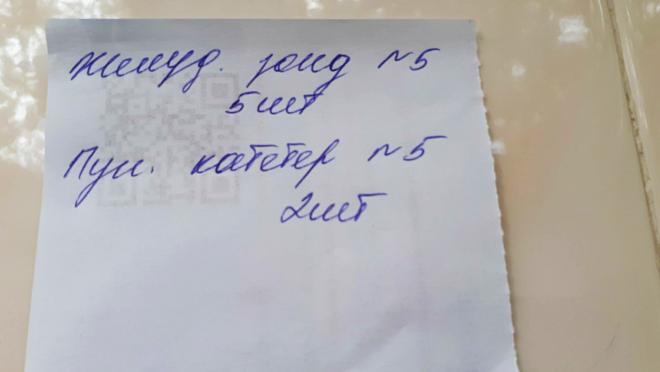 Желуд. зонд №5
5шт
Пуп. катетер №5
2шт